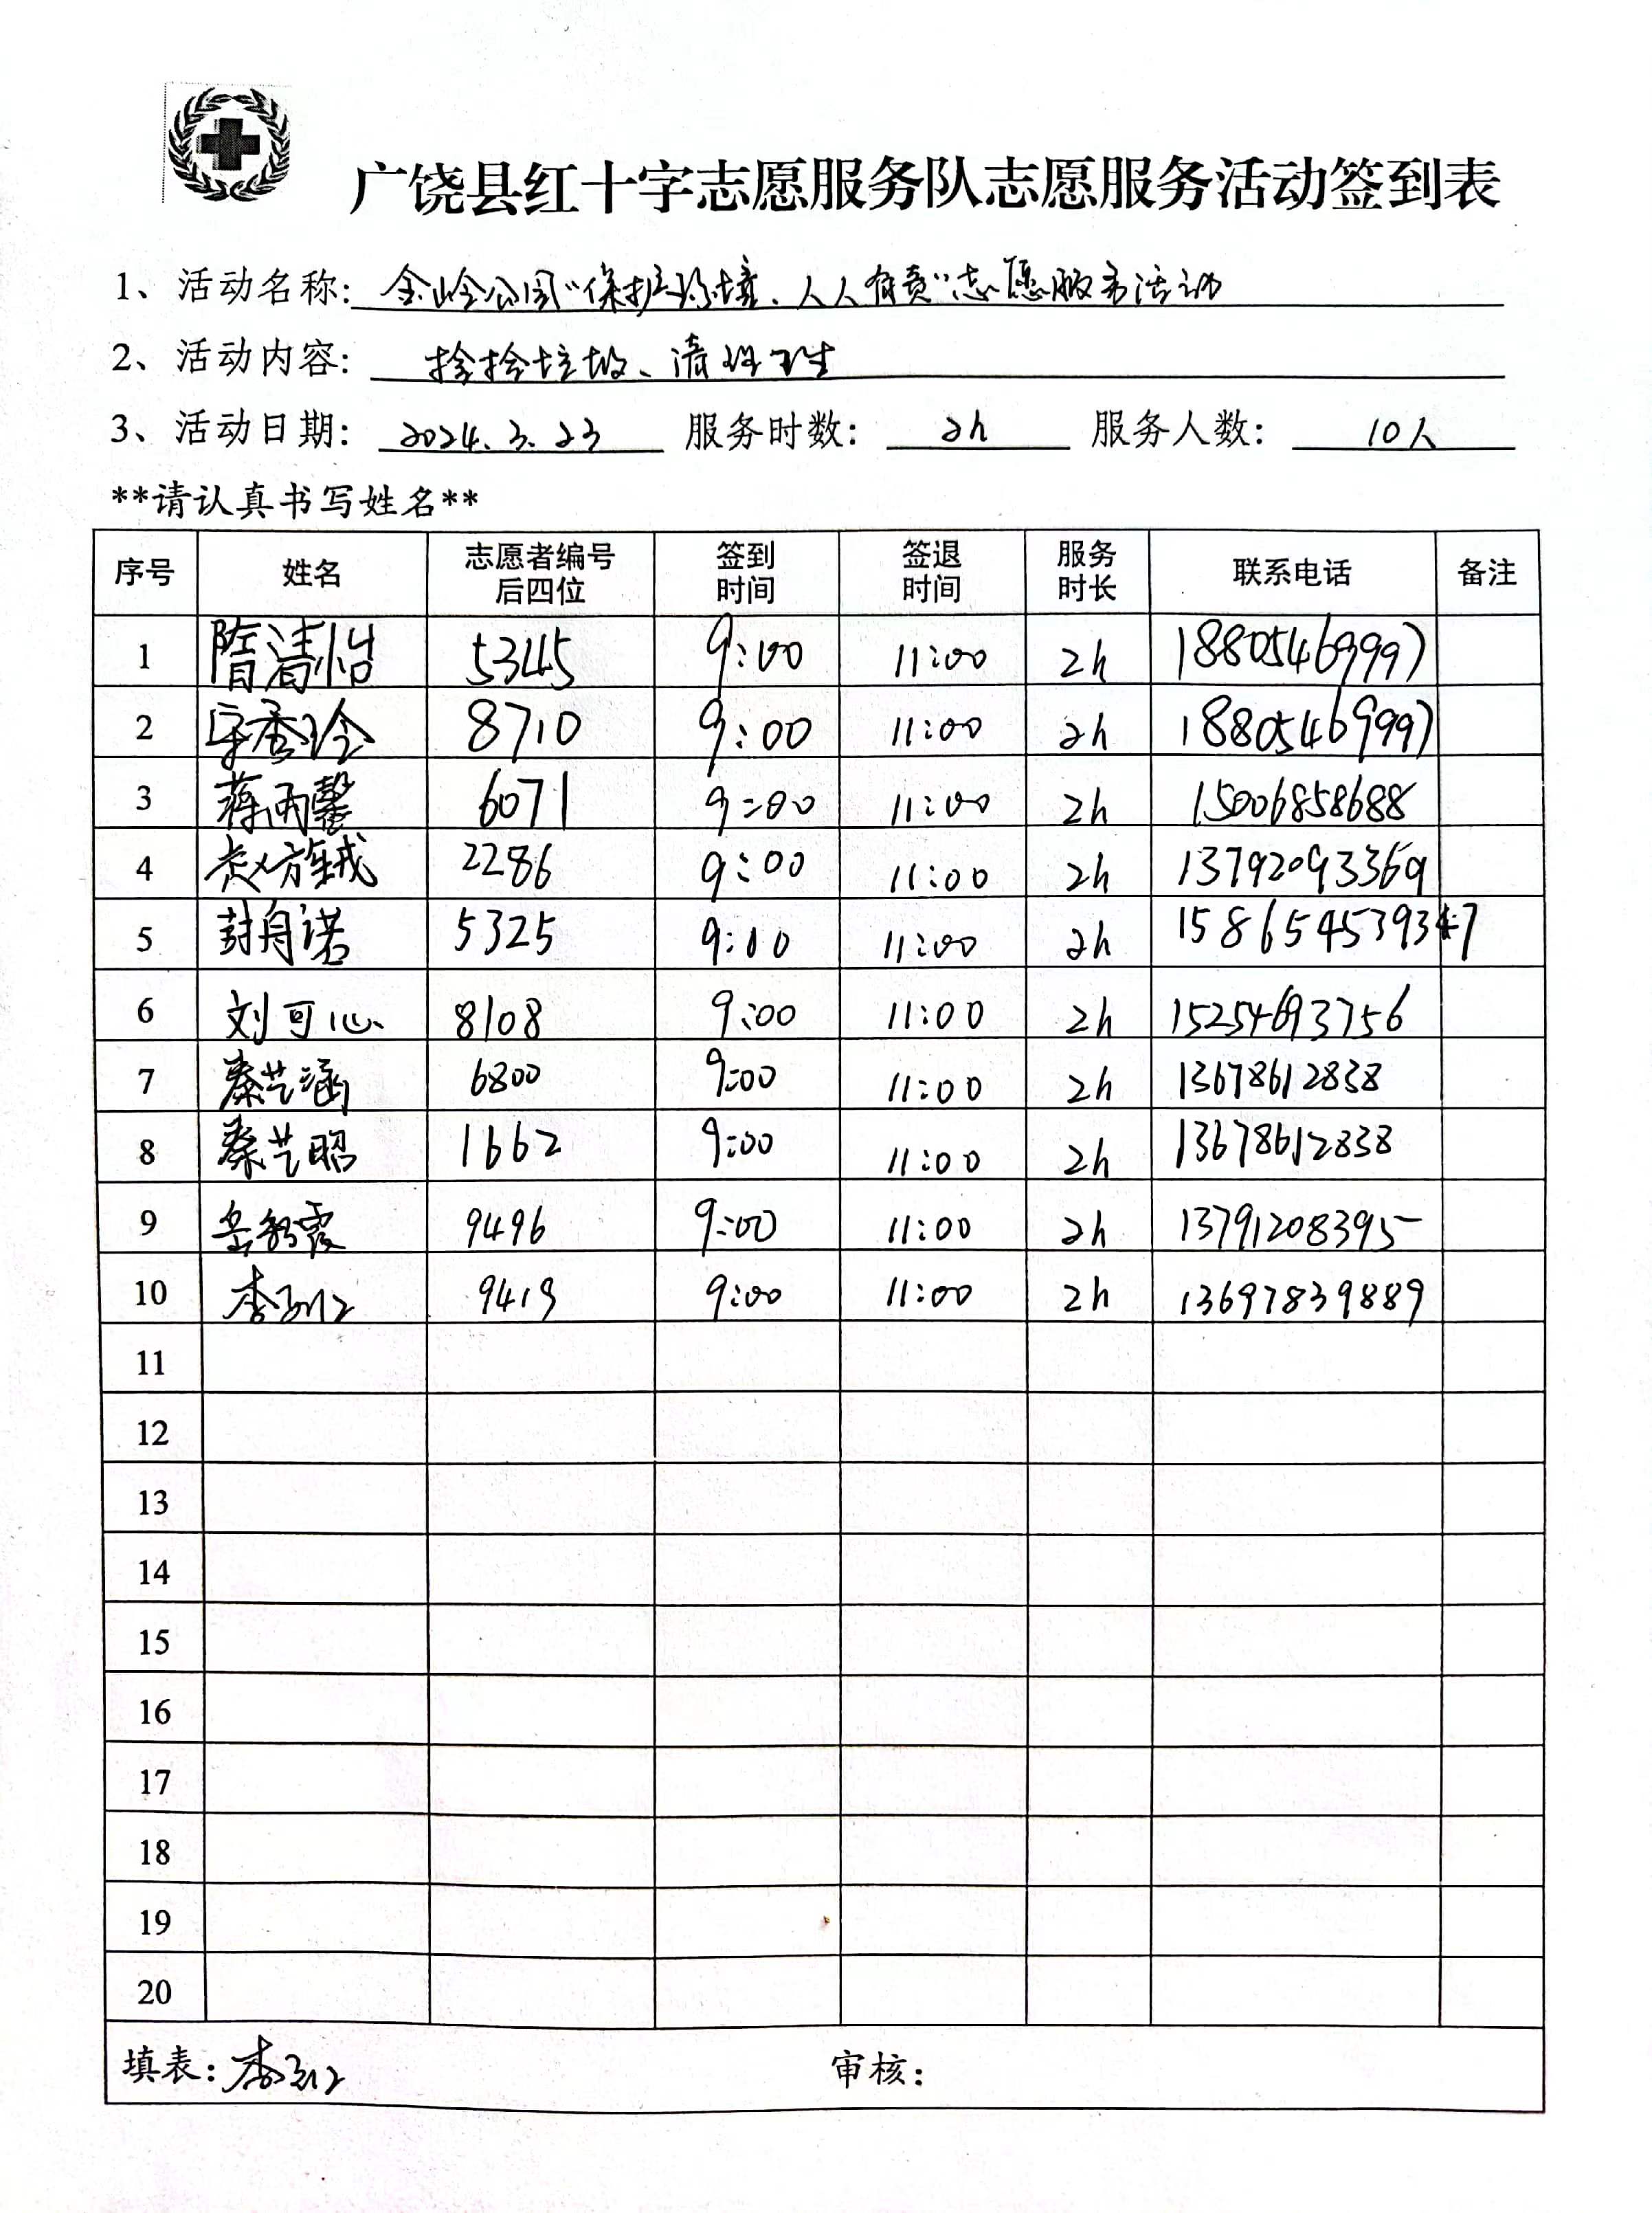 广饶县红十字志愿服务队志愿服务活动签到表
1、活动名称: 金岭公园“保护环境、人人有责”志愿服务活动
2、活动内容: 捡拾垃圾、清理卫生
3、活动日期: 2024.3.23 服务时数: 2h 服务人数: 10人
**请认真书写姓名**
序号 姓名 志愿者编号后四位 签到时间 签退时间 服务时长 联系电话 备注
1 隋清怡 5345 9:00 11:00 2h 18805469997
2 宋秀玲 8710 9:00 11:00 2h 18805469997
3 蒋雨馨 6071 9:00 11:00 2h 15006858688
4 赵旌铖 2286 9:00 11:00 2h 13792093369
5 封舟诺 5325 9:00 11:00 2h 15865453937
6 刘可心 8108 9:00 11:00 2h 15254693756
7 秦艺涵 6800 9:00 11:00 2h 13678612838
8 秦艺昭 1662 9:00 11:00 2h 13678612838
9 岳 霞 9496 9:00 11:00 2h 13791208395
10 李 9419 9:00 11:00 2h 13697839889
11
12
13
14
15
16
17
18
19
20
填表: 李 审核: